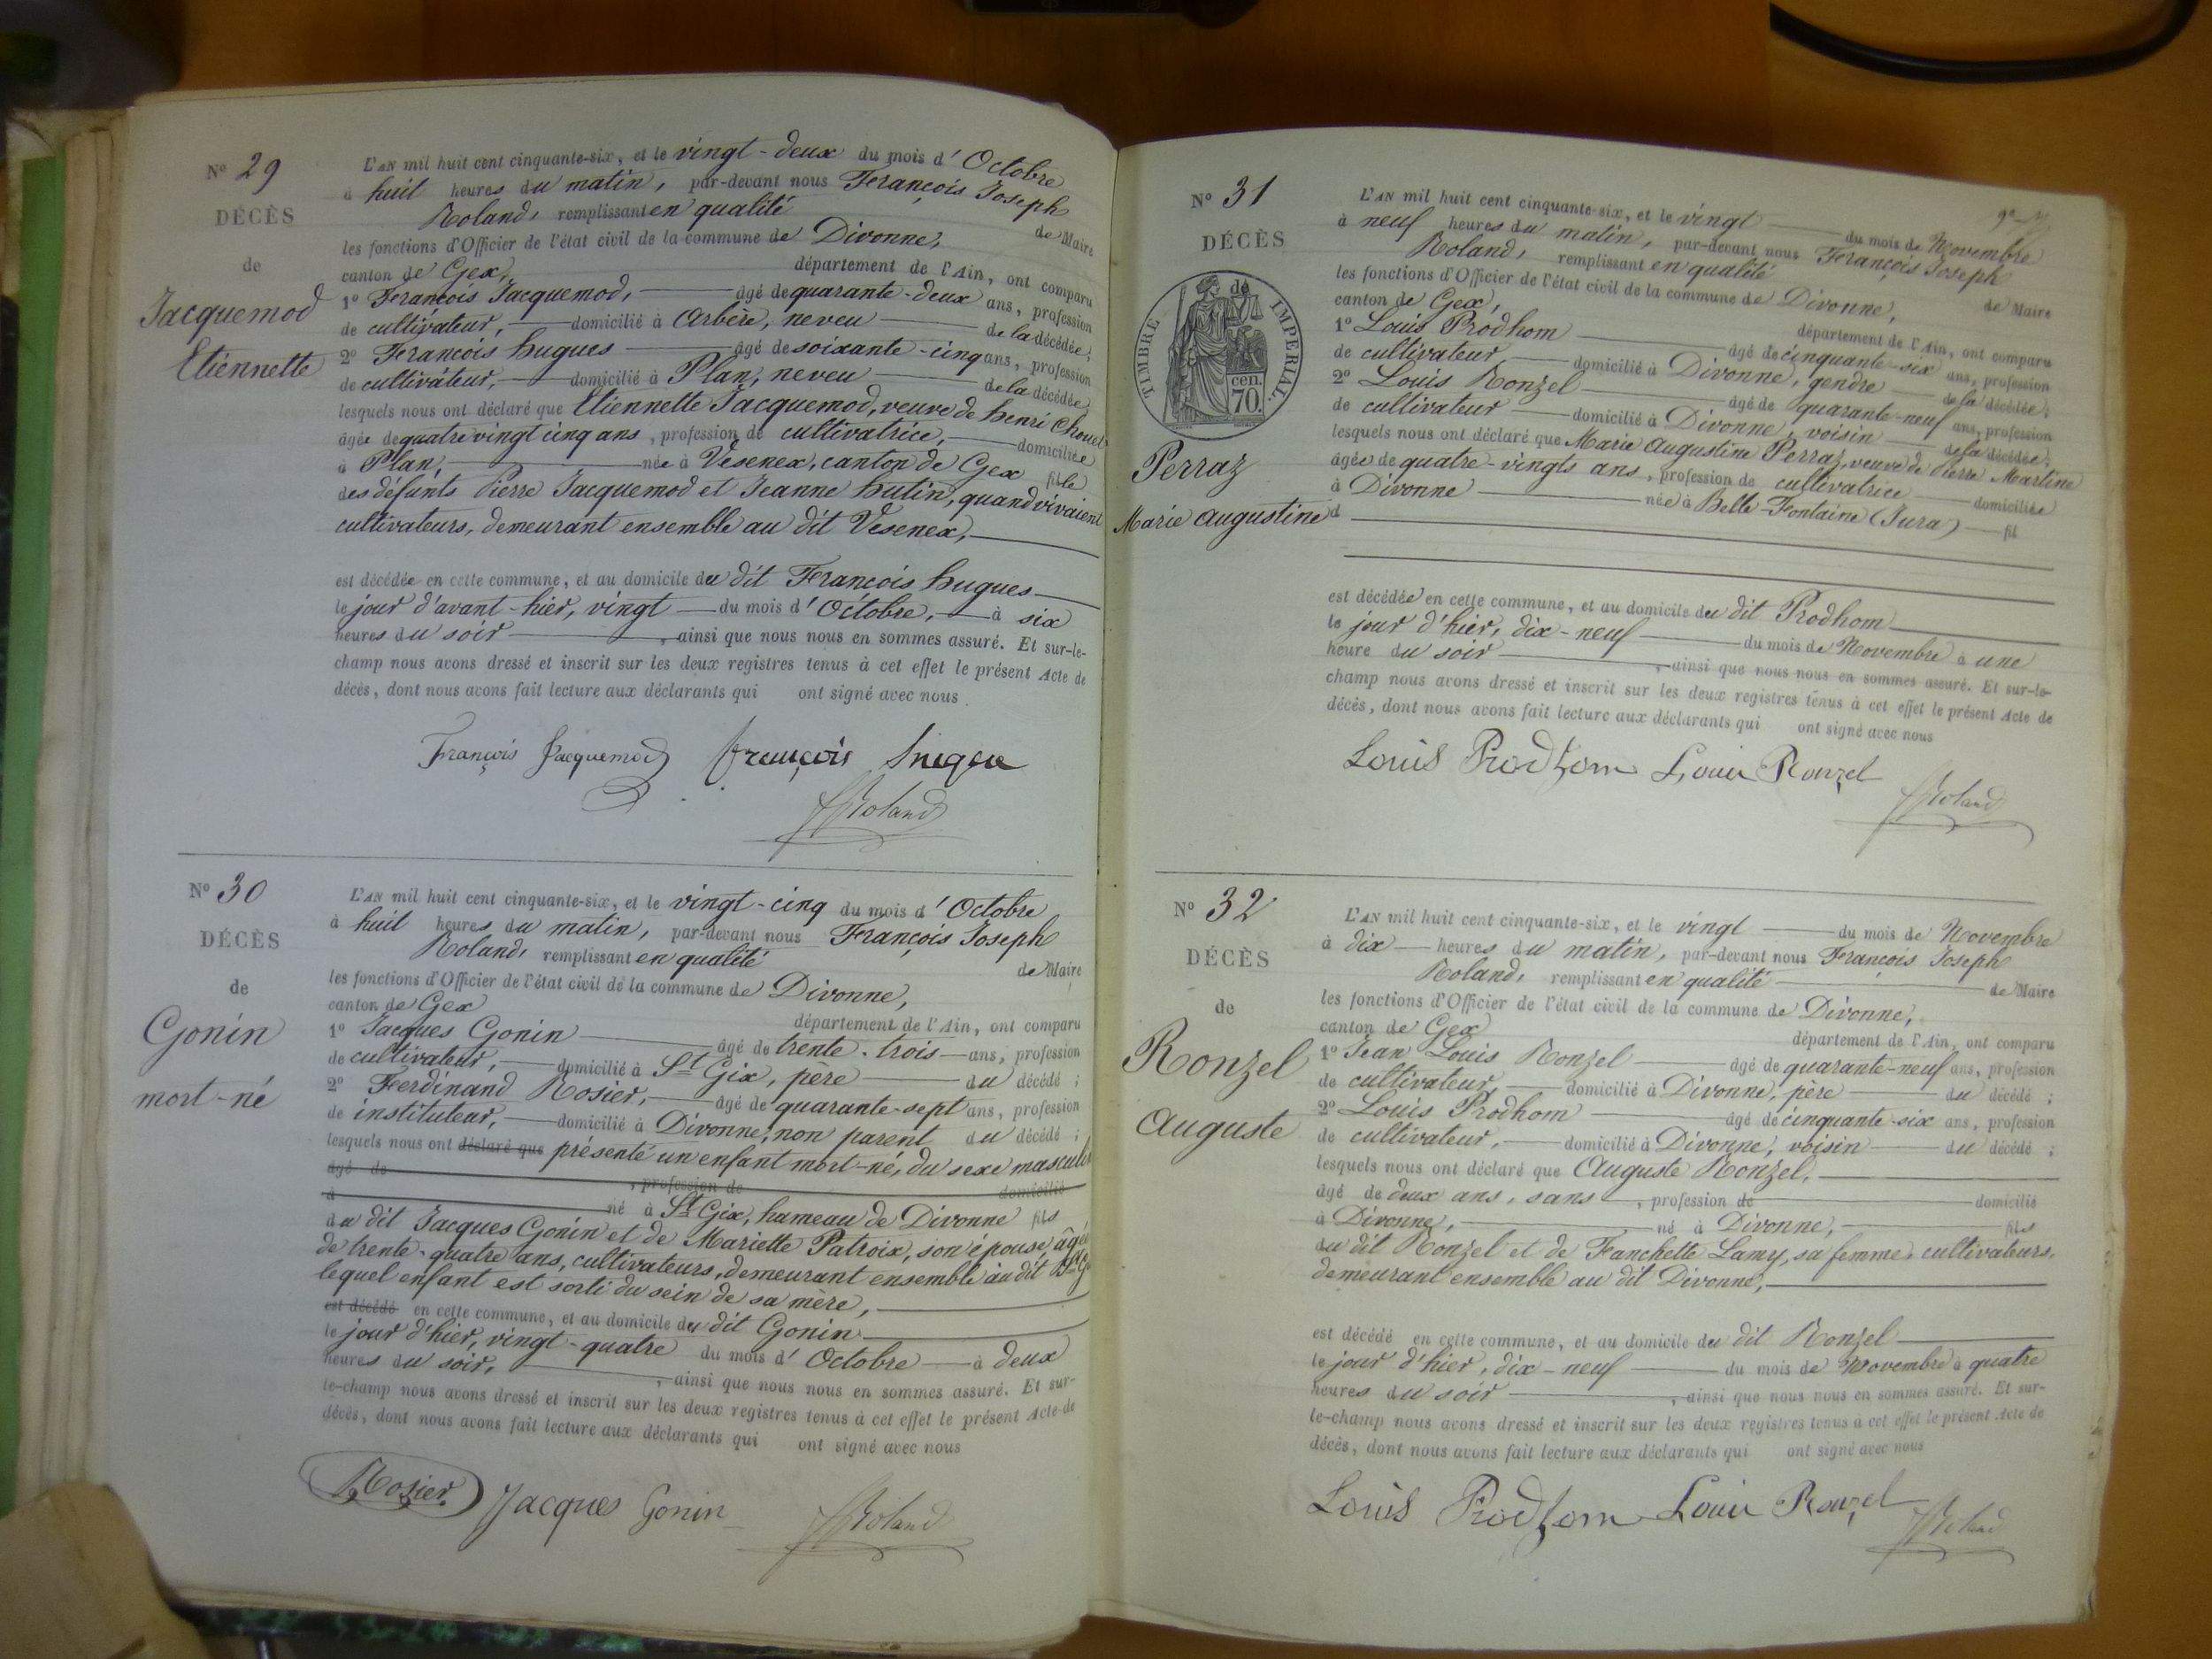 N° 29
DÉCÈS
de
Jacquemod
Etiennette
L'AN mil huit cent cinquante-six, et le vingt-deux du mois d'Octobre
à huit heures du matin, par-devant nous François Joseph
Roland, remplissant en qualité de Maire
les fonctions d'Officier de l'état civil de la commune de Divonne,
canton de Gex, département de l'Ain, ont comparu
1° François Jacquemod, âgé de quarante-deux ans, profession
de cultivateur, domicilié à Arbère, neveu de la décédée;
2° François hugues âgé de soixante-cinq ans, profession
de cultivateur, domicilié à Plan, neveu de la décédée
lesquels nous ont déclaré que Etiennette Jacquemod, veuve de henri
âgée de quatre vingt cinq ans, profession de cultivatrice, domiciliée
à Plan, née à Vesenex, canton de Gex fille
des défunts Pierre Jacquemod et Jeanne hutin, quand vivaient
cultivateurs, demeurant ensemble au dit Vesenex,
est décédée en cette commune, et au domicile du dit François hugues
le jour d'avant-hier, vingt du mois d'Octobre, à six
heures du soir, ainsi que nous nous en sommes assuré. Et sur-le-
champ nous avons dressé et inscrit sur les deux registres tenus à cet effet le présent Acte de
décès, dont nous avons fait lecture aux déclarants qui ont signé avec nous
François Jacquemod françois
Roland
N° 30
DÉCÈS
de
Gonin
mort-né
L'AN mil huit cent cinquante-six, et le vingt-cinq du mois d'Octobre
à huit heures du matin, par-devant nous François Joseph
Roland, remplissant en qualité de Maire
les fonctions d'Officier de l'état civil de la commune de Divonne,
canton de Gex département de l'Ain, ont comparu
1° Jacques Gonin âgé de trente-trois ans, profession
de cultivateur, domicilié à St Gix, père du décédé;
2° Ferdinand Rosier, âgé de quarante-sept ans, profession
de instituteur, domicilié à Divonne, non parent du décédé;
lesquels nous ont déclaré que présenté un enfant mort-né, du sexe masculin
âgé de , profession de domicilié
à né à St Gix, hameau de Divonne fils
du dit Jacques Gonin et de Mariette Patroix, son épouse, âgée
de trente-quatre ans, cultivateurs, demeurant ensemble au dit
lequel enfant est sorti du sein de sa mère,
est décédé en cette commune, et au domicile du dit Gonin
le jour d'hier, vingt-quatre du mois d'Octobre à deux
heures du soir, ainsi que nous nous en sommes assuré. Et sur-
le-champ nous avons dressé et inscrit sur les deux registres tenus à cet effet le présent Acte de
décès, dont nous avons fait lecture aux déclarants qui ont signé avec nous
Rosier Jacques Gonin Roland
N° 31
DÉCÈS
de
TIMBRE IMPERIAL.
cen.
70.
Perraz
Marie Augustine
L'AN mil huit cent cinquante-six, et le vingt du mois de Novembre
à neuf heures du matin, par-devant nous François Joseph
Roland, remplissant en qualité de Maire
les fonctions d'Officier de l'état civil de la commune de Divonne,
canton de Gex, département de l'Ain, ont comparu
1° Louis Prodhom âgé de cinquante-six ans, profession
de cultivateur, domicilié à Divonne, gendre de la décédée;
2° Louis Ronzel âgé de quarante-neuf ans, profession
de cultivateur domicilié à Divonne, voisin de la décédée;
lesquels nous ont déclaré que Marie Augustine Perraz, veuve de Pierre Martine
âgée de quatre-vingts ans, profession de cultivatrice domiciliée
à Divonne née à Belle-Fontaine (Jura) fil
d
est décédée en cette commune, et au domicile du dit Prodhom
le jour d'hier, dix-neuf du mois de Novembre à une
heure du soir, ainsi que nous nous en sommes assuré. Et sur-le-
champ nous avons dressé et inscrit sur les deux registres tenus à cet effet le présent Acte de
décès, dont nous avons fait lecture aux déclarants qui ont signé avec nous
Louis Prodhom Louis Ronzel
Roland
N° 32
DÉCÈS
de
Ronzel
Auguste
L'AN mil huit cent cinquante-six, et le vingt du mois de Novembre
à dix heures du matin, par-devant nous François Joseph
Roland, remplissant en qualité de Maire
les fonctions d'Officier de l'état civil de la commune de Divonne,
canton de Gex département de l'Ain, ont comparu
1° Jean Louis Ronzel âgé de quarante-neuf ans, profession
de cultivateur, domicilié à Divonne, père du décédé;
2° Louis Prodhom âgé de cinquante-six ans, profession
de cultivateur, domicilié à Divonne, voisin du décédé;
lesquels nous ont déclaré que Auguste Ronzel,
âgé de deux ans, sans, profession de domicilié
à Divonne, né à Divonne, fils
du dit Ronzel et de Fanchette Lamy, sa femme, cultivateurs,
demeurant ensemble au dit Divonne,
est décédé en cette commune, et au domicile du dit Ronzel
le jour d'hier, dix-neuf du mois de Novembre à quatre
heures du soir, ainsi que nous nous en sommes assuré. Et sur-
le-champ nous avons dressé et inscrit sur les deux registres tenus à cet effet le présent Acte de
décès, dont nous avons fait lecture aux déclarants qui ont signé avec nous
Louis Prodhom Louis Ronzel Roland